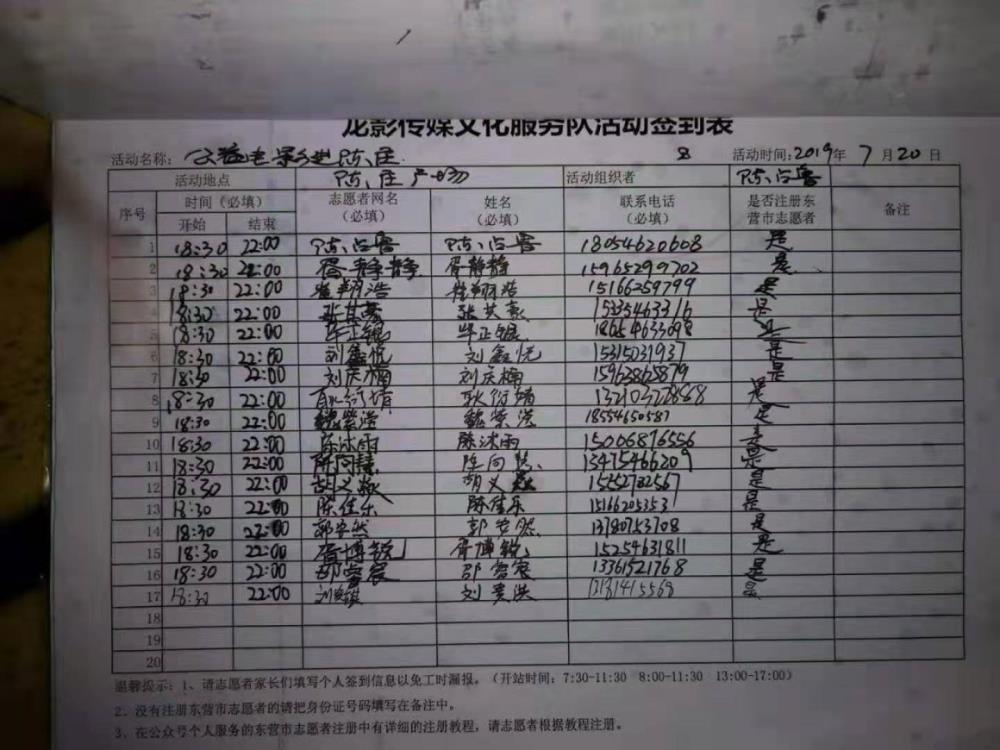 龙影传媒文化服务队活动签到表
活动名称: 公益电影进陈庄 活动时间:2019年 7月20日
活动地点 陈庄广场 活动组织者 陈占鲁
序号 时间(必填) 志愿者网名(必填) 姓名(必填) 联系电话(必填) 是否注册东营市志愿者 备注
开始 结束
1 18:30 22:00 18054620608 是
2 18:30 22:00 胥静静 胥静静 15965299702 是
3 18:30 22:00 崔翔浩 崔翔浩 15166259799 是
4 18:30 22:00 张其豪 张其豪 是
5 18:30 22:00 毕正锟 毕正锟 18654633098 是
6 18:30 22:00 刘鑫悦 刘鑫悦 15315031937 是
7 18:30 22:00 刘庆楠 刘庆楠 15963862879 是
8 18:30 22:00 是
9 18:30 22:00 魏紫滢 魏紫滢 18554650587 是
10 18:30 22:00 陈冰雨 陈冰雨 15006876556 是
11 18:30 22:00 13475466209 是
12 18:30 22:00 是
13 18:30 22:00 陈佳乐 陈佳乐 15166205353 是
14 18:30 22:00 郭安然 郭安然 13780753708 是
15 18:30 22:00 胥博锐 胥博锐 15254631811 是
16 18:30 22:00 13361521768 是
17 18:30 22:00 是
18
19
20
温馨提示:1、请志愿者家长们填写个人签到信息以免工时漏报。(开站时间:7:30-11:30 8:00-11:30 13:00-17:00)
2、没有注册东营市志愿者的请把身份证号码填写在备注中。
3、在公众号个人服务的东营市志愿者注册中有详细的注册教程,请志愿者根据教程注册。